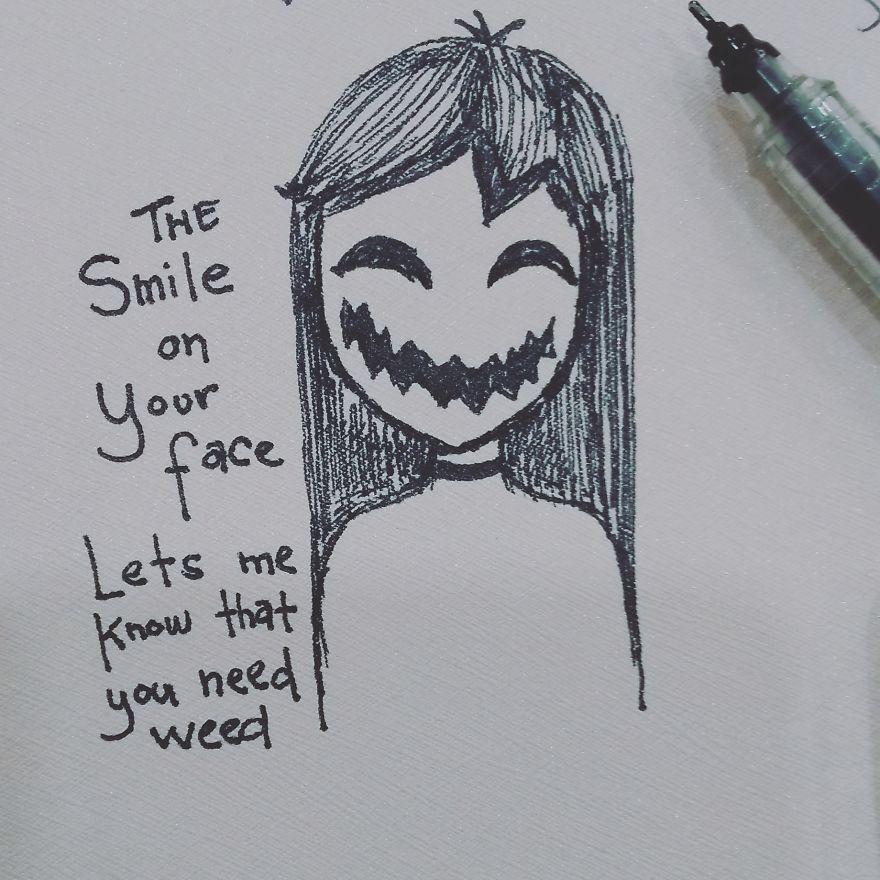 THE
Smile
on
your
face
Lets me
know that
you need
weed